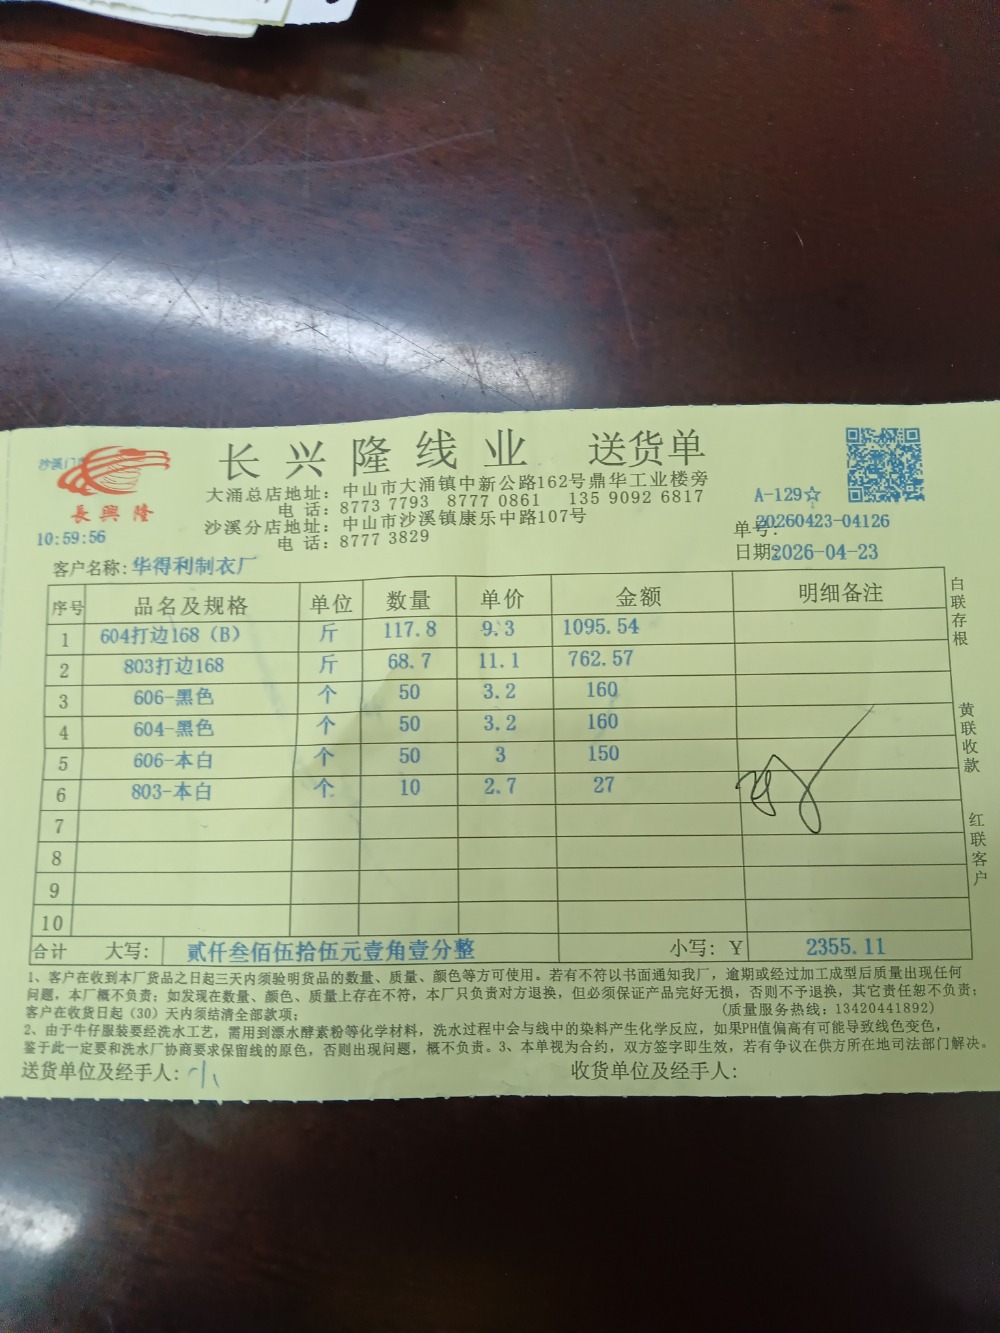 长兴隆线业 送货单
沙溪门
長興隆
大涌总店地址：中山市大涌镇中新公路162号鼎华工业楼旁
电 话：8773 7793 8777 0861 135 9092 6817
沙溪分店地址：中山市沙溪镇康乐中路107号
电 话：8777 3829
A-129☆
单号：20260423-04126
日期：2026-04-23
10:59:56
客户名称：华得利制衣厂
序号 品名及规格 单位 数量 单价 金额 明细备注
1 604打边168（B） 斤 117.8 9.3 1095.54
2 803打边168 斤 68.7 11.1 762.57
3 606-黑色 个 50 3.2 160
4 604-黑色 个 50 3.2 160
5 606-本白 个 50 3 150
6 803-本白 个 10 2.7 27
7
8
9
10
合计 大写：贰仟叁佰伍拾伍元壹角壹分整 小写：Y 2355.11
白联存根
黄联收款
红联客户
1、客户在收到本厂货品之日起三天内须验明货品的数量、质量、颜色等方可使用。若有不符以书面通知我厂，逾期或经过加工成型后质量出现任何
问题，本厂概不负责；如发现在数量、颜色、质量上存在不符，本厂只负责对方退换，但必须保证产品完好无损，否则不予退换，其它责任恕不负责；
客户在收货日起（30）天内须结清全部款项； (质量服务热线：13420441892)
2、由于牛仔服装要经洗水工艺，需用到漂水酵素粉等化学材料，洗水过程中会与线中的染料产生化学反应，如果PH值偏高有可能导致线色变色，
鉴于此一定要和洗水厂协商要求保留线的原色，否则出现问题，概不负责。3、本单视为合约，双方签字即生效，若有争议在供方所在地司法部门解决。
送货单位及经手人： 收货单位及经手人：